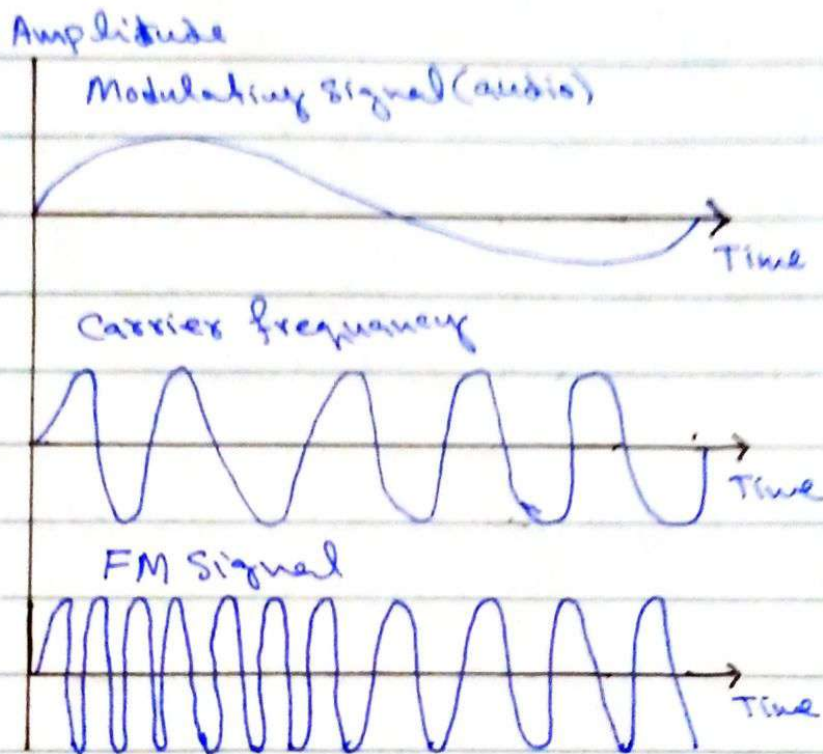 Amplitude
Modulating signal (audio)
Time
Carrier frequancy
Time
FM Signal
Time